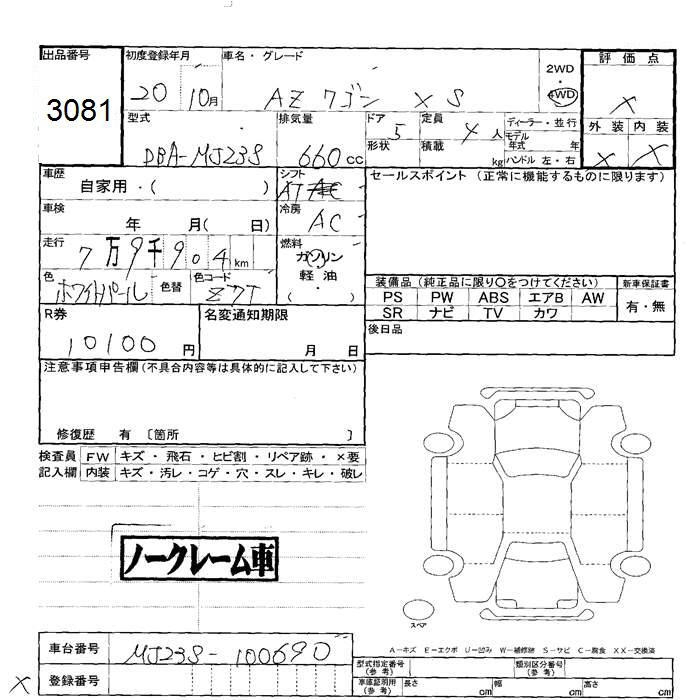 出品番号 初度登録年月 車名・グレード 2WD 評価点
3081 20 10月 AZ ワゴン XS 4WD X
型式 排気量 ドア 5 定員 4 人 ディーラー・並行 外装 内装
DBA-MJ23S 660cc 形状 積載 kg モデル年式 年 X X
ハンドル 左・右
車歴 自家用・( ) シフト AT セールスポイント (正常に機能するものに限ります)
車検 年 月( 日) 冷房 AC
走行 7万9千904km 燃料 ガソリン
軽油
( ・ )
色 ホワイトパール 色替 色コード Z7T 装備品 (純正品に限り○をつけてください) 新車保証書
PS PW ABS エアB AW 有・無
SR ナビ TV カワ
R券 名変通知期限 後日品
10100円 月 日
注意事項申告欄(不具合内容等は具体的に記入して下さい)
修復歴 有 〔箇所 〕
検査員 FW キズ・飛石・ヒビ割・リペア跡・×要
記入欄 内装 キズ・汚レ・コゲ・穴・スレ・キレ・破レ
ノークレーム車
スペア
A-キズ E-エクボ U-凹み W-補修跡 S-サビ C-腐食 XX-交換済
車台番号 MJ23S-100690 型式指定番号(参考) 類別区分番号(参考)
X 登録番号 車庫証明用(参考) 長さ cm 幅 cm 高さ cm